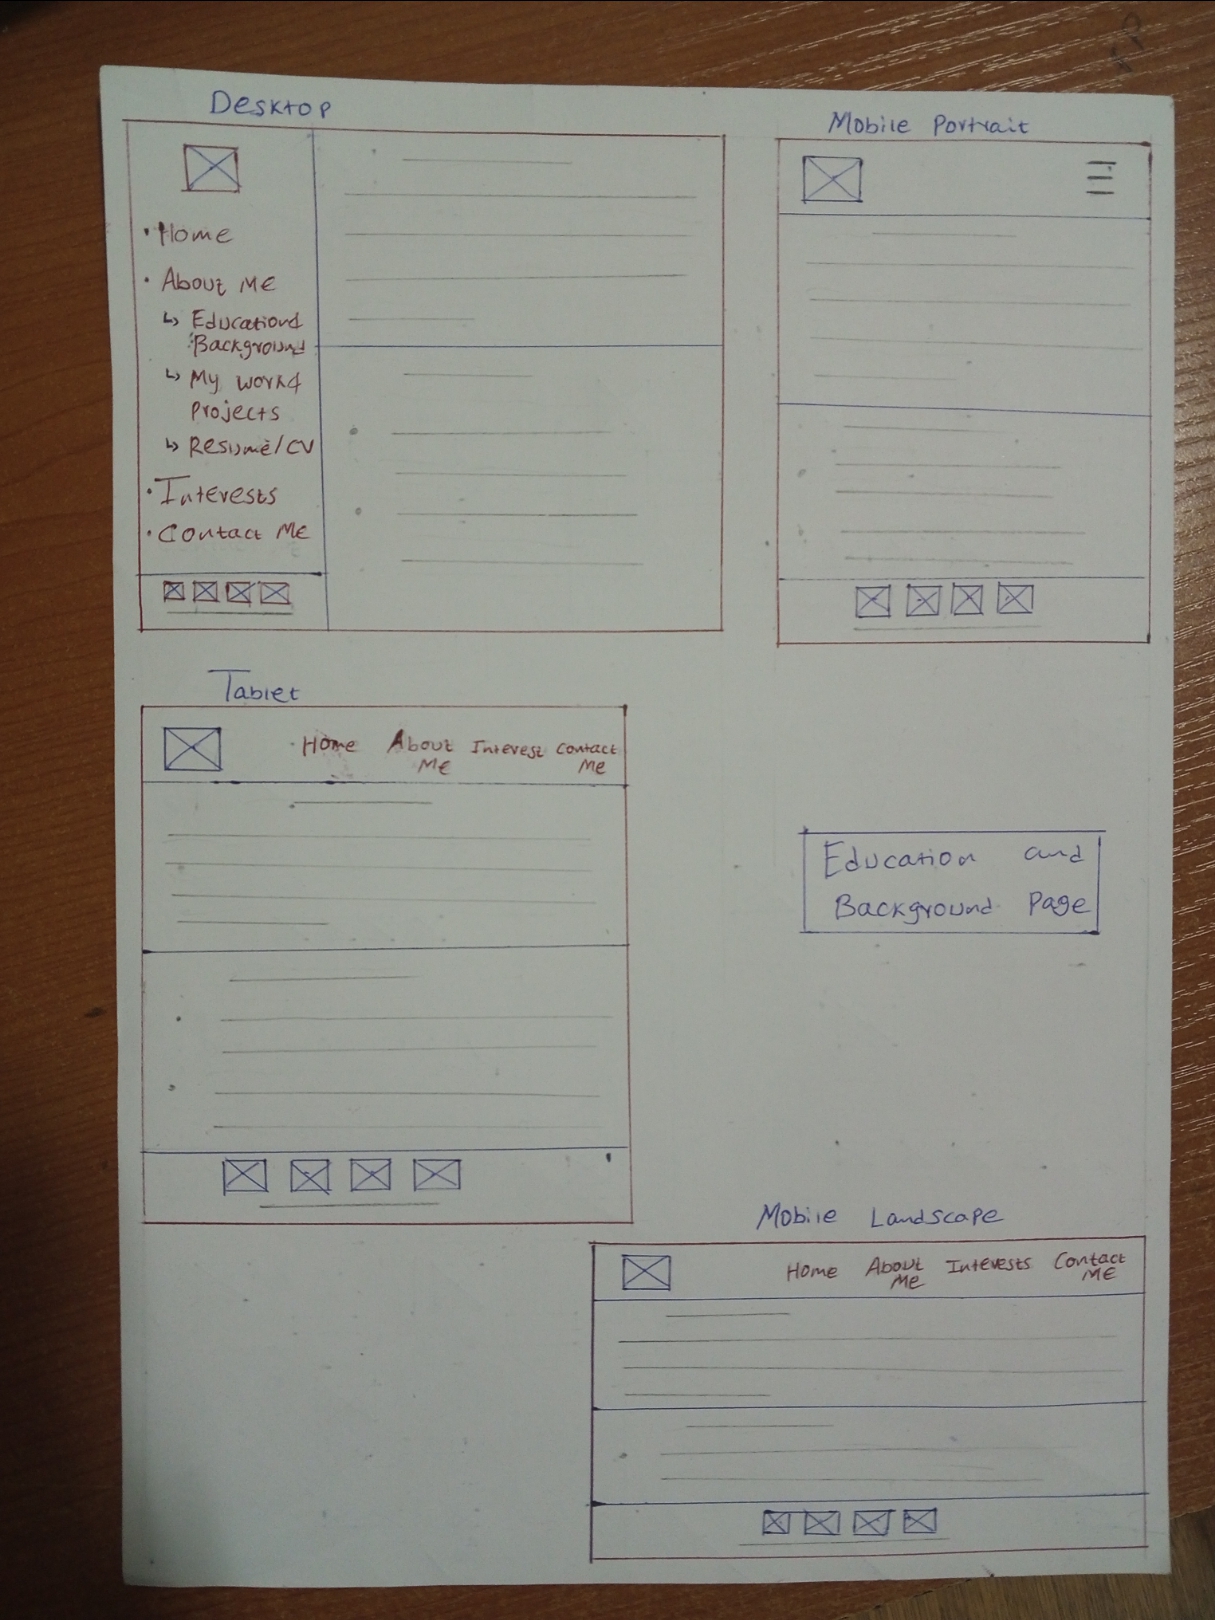 Desktop
• Home
• About Me
↳ Education &
Background
↳ My work &
Projects
↳ Resume/CV
• Interests
• Contact Me
Mobile Portrait
Tablet
Home About Interest Contact
Me Me
Education and
Background Page
Mobile Landscape
Home About Interests Contact
Me Me